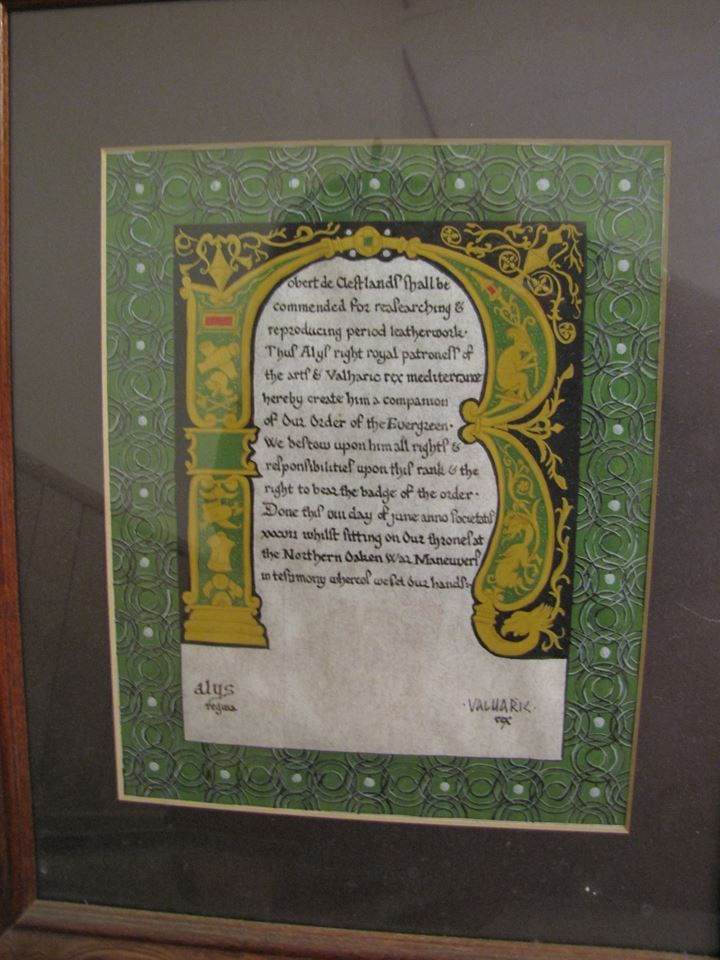 Robert de Cleftlandſ ſhall be
commended for reaſearching &
reproducing period leatherwork.
Thuſ Alyſ right royal patroneſſ of
the artſ & Valharic rex mediterrane
hereby create him a companion
of Our Order of the Evergreen.
We beſtow upon him all rightſ &
reſponſibilitieſ upon thiſ rank & the
right to bear the badge of the order.
Done thiſ day of june anno ſocietatiſ
xxxvii whilſt ſitting on Our throneſ at
the Northern Oaken War Maneuverſ
in teſtimony whereof we ſet our handſ:
alys
regina
·VALHARIC·
rex